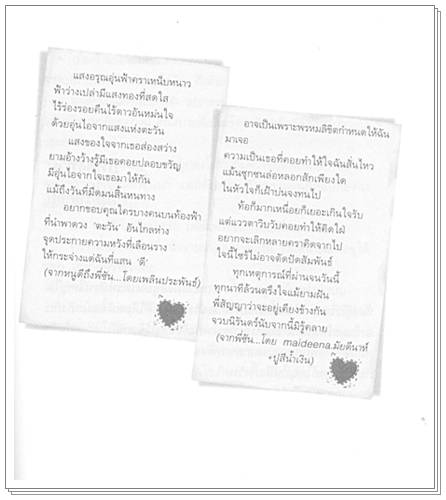 แสงอรุณอุ่นฟ้าคราเหน็บหนาว
ฟ้าว่างเปล่ามีแสงทองที่สดใส
ไร้ร่องรอยคืนไร้ดาวอันหม่นใจ
ด้วยอุ่นไอจากแสงแห่งตะวัน
แสงของใจจากเธอส่องสว่าง
ยามอ้างว้างรู้มีเธอคอยปลอบขวัญ
มีอุ่นไอจากใจเธอมาให้กัน
แม้ถึงวันที่มืดมนสิ้นหนทาง
อยากขอบคุณใครบางคนบนท้องฟ้า
ที่นำพาดวง 'ตะวัน' อันไกลห่าง
จุดประกายความหวังที่เลือนราง
ให้กระจ่างแด่ฉันที่แสน 'ดี'
(จากหนูดีถึงพี่ซัน...โดยเพลินประพันธ์)
อาจเป็นเพราะพรหมลิขิตกำหนดให้ฉัน
มาเจอ
ความเป็นเธอที่คอยทำให้ใจฉันสั่นไหว
แม้นซุกซนล่อหลอกสักเพียงใด
ในหัวใจก็เฝ้าบ่นจงทนไป
ท้อก็มากเหนื่อยก็เยอะเกินใจรับ
แต่แววตาวิบวับคอยทำให้คิดใฝ่
อยากจะเลิกหลายคราคิดจากไป
ใจนี้ไซร้ไม่อาจตัดปัดสัมพันธ์
ทุกเหตุการณ์ที่ผ่านจนวันนี้
ทุกนาทีล้วนตรึงใจแม้ยามฝัน
พี่สัญญาว่าจะอยู่เคียงข้างกัน
จวบนิรันดร์นับจากนี้มิรู้คลาย
(จากพี่ซัน...โดย maideena.มัยดีนาห์
+ปูสีน้ำเงิน)